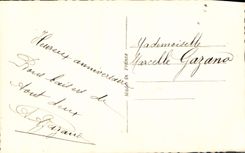 Heureux anniversaire
Bons baisers de
tout deux
Mademoiselle
Marcelle Gazano